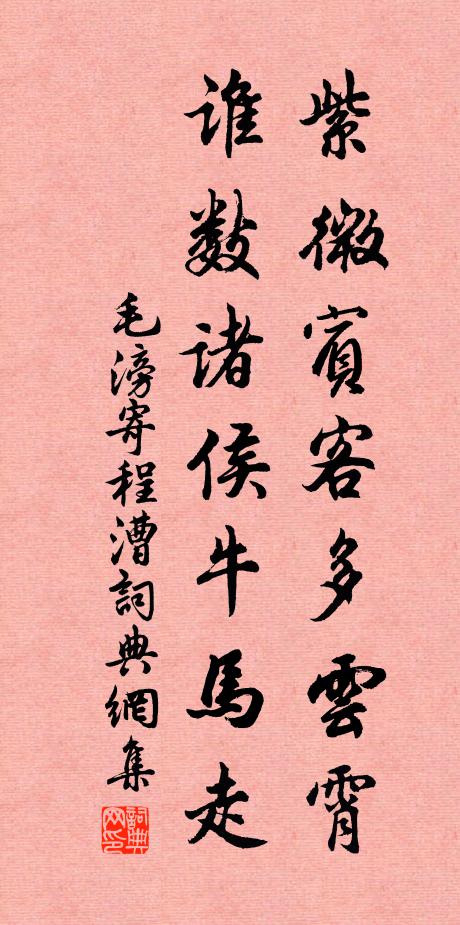 紫微賓客多雲霄
誰數諸侯牛馬走
毛滂寄程漕詞典網集
詞典網印